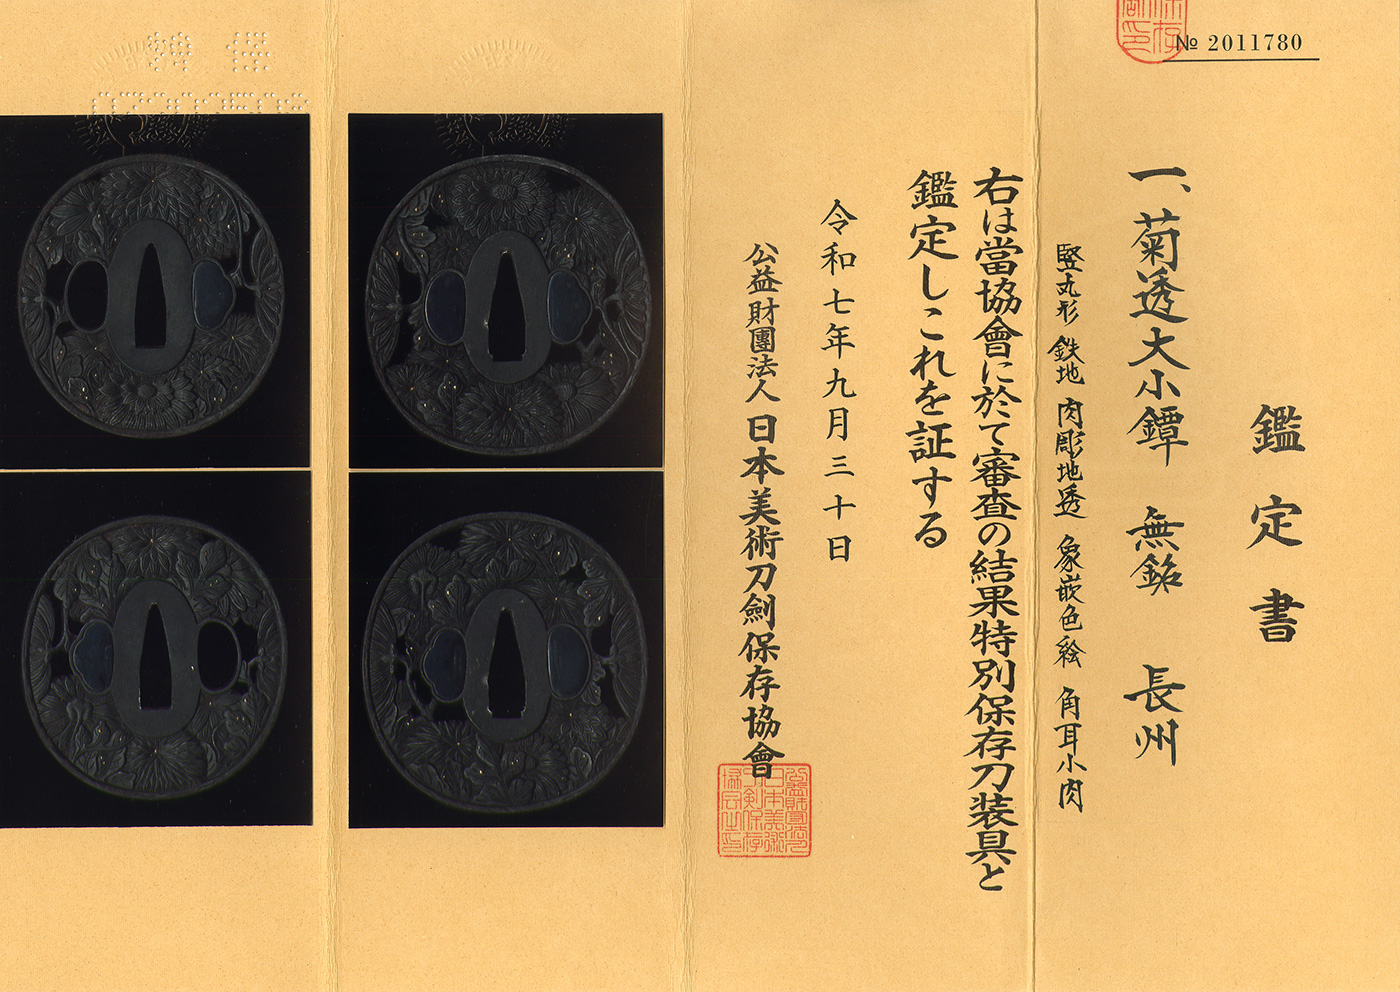 № 2011780
鑑定書
一、菊透大小鐔 無銘 長州
竪丸形 鉄地 肉彫地透 象嵌色絵 角耳小肉
右は當協會に於て審査の結果特別保存刀装具と
鑑定しこれを証する
令和七年九月三十日
公益財團法人 日本美術刀劍保存協會